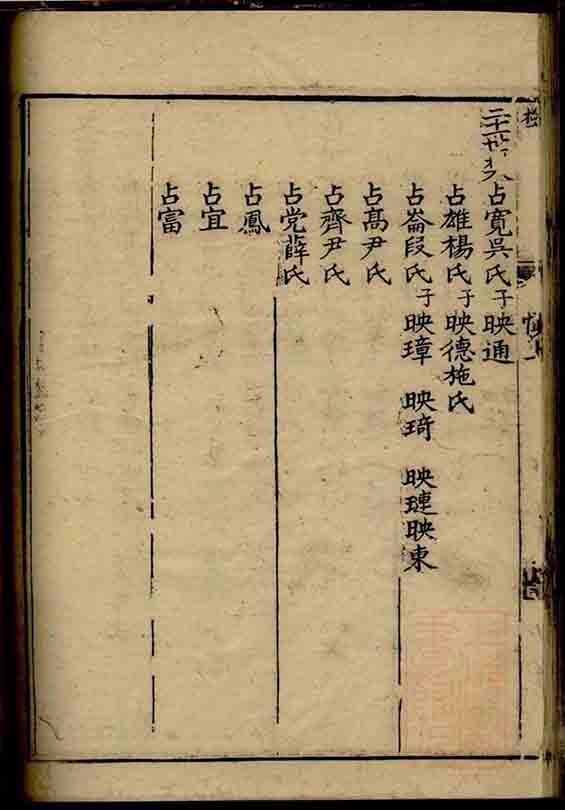 占寬吳氏子映通
占雄楊氏子映德施氏
占崙段氏子映璋 映琦 映璉映東
占高尹氏
占齊尹氏
占党薛氏
占鳳
占宜
占富